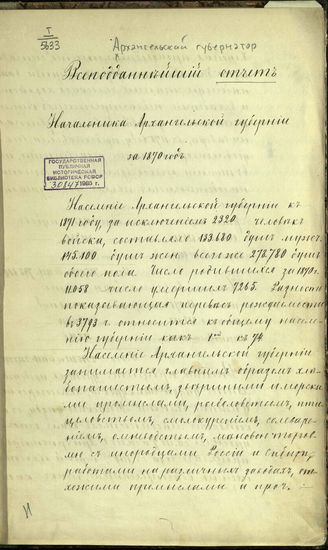 I
5633
Архангельский губернатор
Всеподданнѣйшій отчетъ
Начальника Архангельской губерніи
за 1870 годъ
ГОСУДАРСТВЕННАЯ
ПУБЛИЧНАЯ
ИСТОРИЧЕСКАЯ
БИБЛИОТЕКА РСФСР
30847 1985 г.
Населеніе Архангельской губерніи къ
1871 году, за исключеніемъ 2320 человѣкъ
войска, составляло 133.680 душъ муж.
145.100 душъ жен. всего же 278.780 душъ
обоего пола. Число родившихся за 1870 г.
11058 число умершихъ 7265. Разность
показывающая перевѣсъ рождаемости
въ 3793 ч. относится къ общему населе-
нію губерніи какъ 1 къ 74
Населеніе Архангельской губерніи
занимается главнымъ образомъ хлѣ-
бопашествомъ, звѣриными и морски-
ми промыслами, рыболовствомъ, пти-
целовствомъ, смолокуреніемъ, солеваре-
ніемъ, мѣновою торгов-
ли съ инородцами Россіи и Сибири,
работами на различныхъ заводахъ, от-
хожими промыслами и проч.